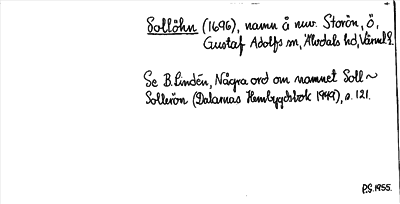 Sollöhn (1696), namn å nuv. Storön, ö,
Gustaf Adolfs sn, Älvdals hd, Värml.
Se B. Lindén, Några ord om namnet Soll~
Sollerön (Dalarnas Hembygdsbok 1949), s. 121.
P.G. 1955.